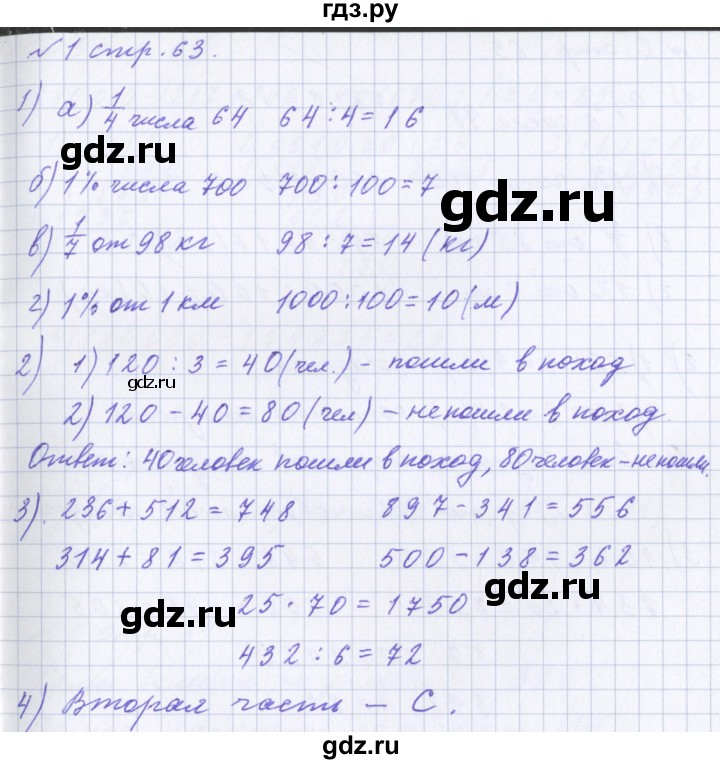 гдз.ру
№1 стр. 63.
1) а) 1/4 числа 64 64 : 4 = 16
gdz.ru
б) 1% числа 700 700 : 100 = 7
gdz.ru
в) 1/7 от 98 кг 98 : 7 = 14 (кг)
г) 1% от 1 км 1000 : 100 = 10 (м)
2) 1) 120 : 3 = 40 (чел.) - пошли в поход
gdz.ru
2) 120 - 40 = 80 (чел) - не пошли в поход
Ответ: 40 человек пошли в поход, 80 человек - не пошли.
3). 236 + 512 = 748 897 - 341 = 556
314 + 81 = 395 500 - 138 = 362
gdz.ru
25 · 70 = 1750
gdz.ru
432 : 6 = 72
4) Вторая часть - С.
gdz.ru